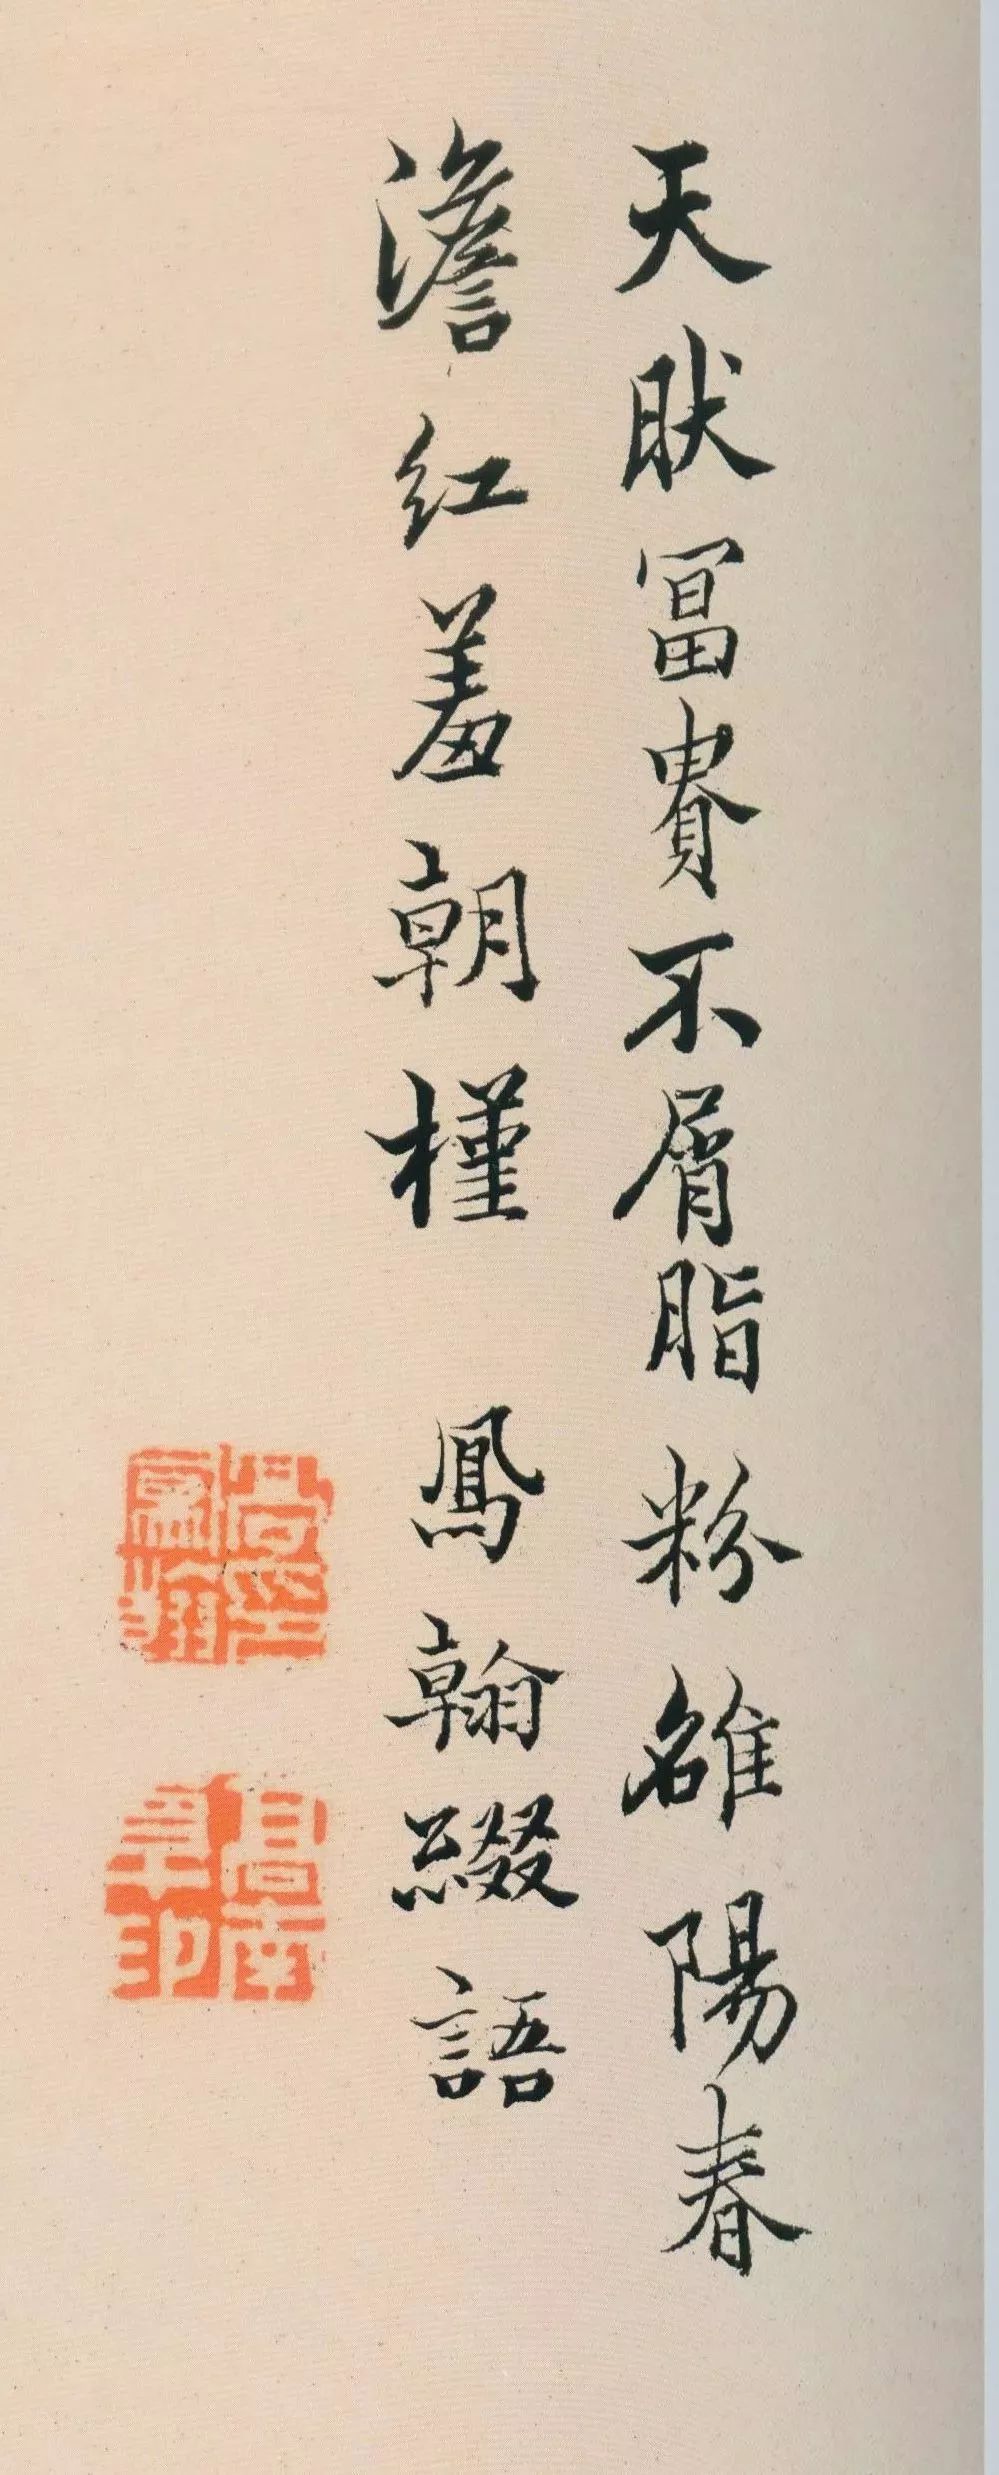 天肰冨貴不屑脂粉雒陽春
澹红羞朝槿 鳳翰綴語